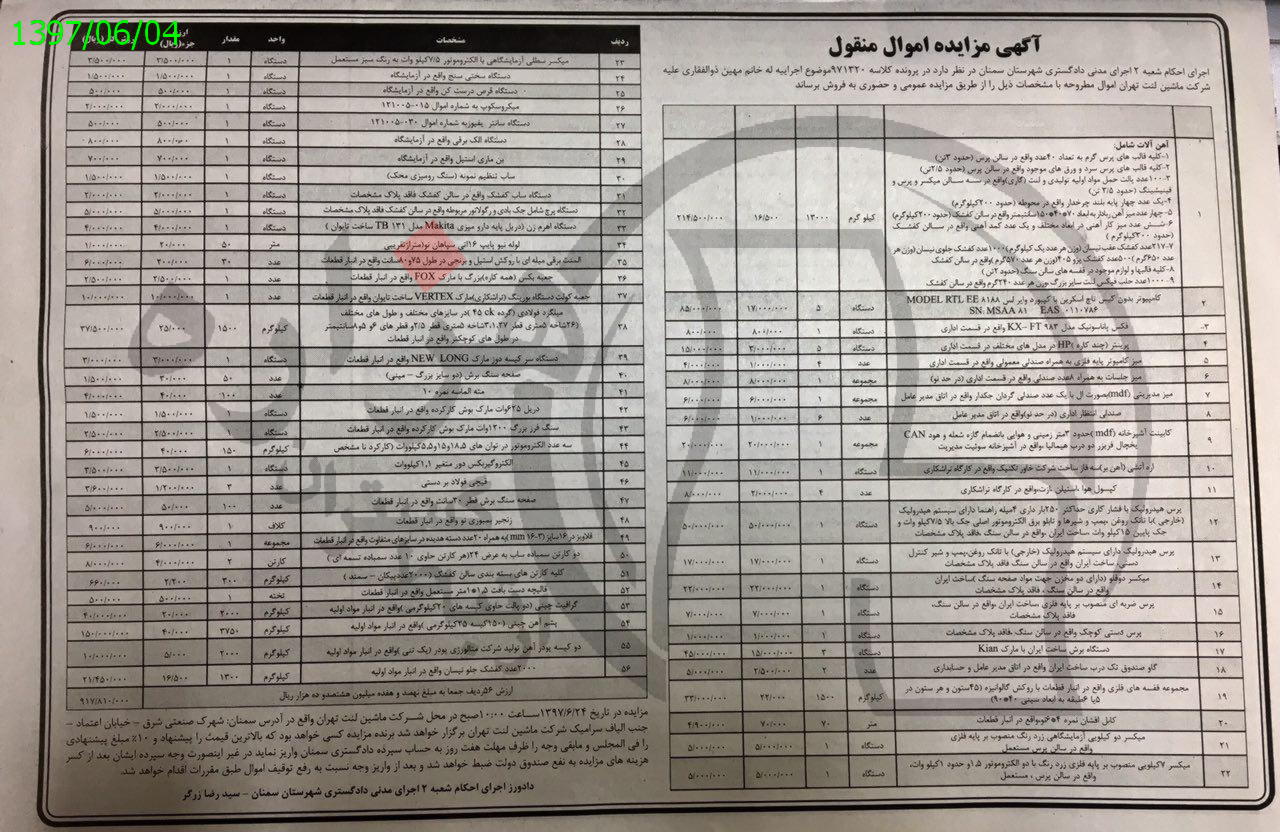 1397/06/04
آگهی مزایده اموال منقول
اجرای احکام شعبه ۲ اجرای مدنی دادگستری شهرستان سمنان در نظر دارد در پرونده کلاسه ۹۷۱۳۲۰موضوع اجراییه له خانم مهین ذوالفقاری علیه
شرکت ماشین لنت تهران اموال مطروحه با مشخصات ذیل را از طریق مزایده عمومی و حضوری به فروش برساند
۱ آهن آلات شامل:
۱-کلیه قالب های پرس گرم به تعداد ۴۰عدد واقع در سالن پرس (حدود ۳تن)
۲-کلیه قالب های پرس سرد و ورق های موجود واقع در سالن پرس (حدود ۲/۵تن)
۳-۱۰۰عدد پالت حمل مواد اولیه تولیدی و لنت (گاری)واقع در سه سالن میکسر و پرس و
فینیشینگ (حدود ۲/۵ تن)
۴-یک عدد چهار پایه بلند چرخدار واقع در محوطه (حدود ۲۰۰کیلوگرم)
کیلو گرم ۱۳۰۰۰ ۱۶/۵۰۰ ۲۱۴/۵۰۰/۰۰۰
۶-شش عدد میز کار آهنی در ابعاد مختلف و یک عدد کمد آهنی واقع در سالن کفشک
(حدود ۳۰۰کیلوگرم )
۸-کلیه قالبها و لوازم موجود در قفسه های سالن سنگ (حدود ۲تن )
۲ کامپیوتر بدون کیس تاچ اسکرین با کیبورد وایر لس MODEL RTL EE ۸۱۸۸
SN: MSAA ۸۱ EAS ۰۱۱۰۷۸۶ دستگاه ۵ ۱۷/۰۰۰/۰۰۰ ۸۵/۰۰۰/۰۰۰
۳- فکس پاناسونیک مدل KX- FT ۹۸۳ واقع در قسمت اداری دستگاه ۱ ۸۰۰/۰۰۰ ۸۰۰/۰۰۰
۴ پرینتر (چند کاره )HP در مدل های مختلف در قسمت اداری دستگاه ۵ ۳/۰۰۰/۰۰۰ ۱۵/۰۰۰/۰۰۰
۵ میز کامپیوتر پایه فلزی به همراه صندلی معمولی واقع در قسمت اداری عدد ۴ ۱/۰۰۰/۰۰۰ ۴/۰۰۰/۰۰۰
۶ میز جلسات به همراه ۸عدد صندلی واقع در قسمت اداری (در حد نو) مجموعه ۱ ۸/۰۰۰/۰۰۰ ۸/۰۰۰/۰۰۰
۷ میز مدیریتی (mdf)بصورت ال با یک عدد صندلی گردان جکدار واقع در اتاق مدیر عامل مجموعه ۱ ۶/۰۰۰/۰۰۰ ۶/۰۰۰/۰۰۰
۸ صندلی انتظار اداری (در حد نو)واقع در اتاق مدیر عامل عدد ۶ ۱/۰۰۰/۰۰۰ ۶/۰۰۰/۰۰۰
۹ کابینت آشپزخانه (mdf )حدود ۳متر زمینی و هوایی بانضمام گازه شعله و هود CAN
یخچال فریزر دو درب هیمالیا ،واقع در آشپزخانه سوئیت مدیریت مجموعه ۱ ۲۰/۰۰۰/۰۰۰ ۲۰/۰۰۰/۰۰۰
۱۰ اره آتشی (آهن بر)سه فاز ساخت شرکت خاور تکنیک واقع در کارگاه تراشکاری دستگاه ۱ ۱۱/۰۰۰/۰۰۰ ۱۱/۰۰۰/۰۰۰
۱۱ عدد ۴ ۲/۰۰۰/۰۰۰ ۸/۰۰۰/۰۰۰
۱۲ پرس هیدرولیک با فشار کاری حداکثر ۲۵۰بار داری ۴میله راهنما دارای سیستم هیدرولیک
(خارجی)با تانک روغن ،پمپ و شیرها و تابلو برق الکتروموتور اصلی جک بالا ۷/۵کیلو وات و
جک پایین ۱۵کیلو وات ،ساخت ایران ،واقع در سالن سنگ ،فاقد پلاک مشخصات دستگاه ۱ ۵۰/۰۰۰/۰۰۰ ۵۰/۰۰۰/۰۰۰
۱۳ پرس هیدرولیک دارای سیستم هیدرولیک (خارجی) با تانک روغن،پمپ و شیر کنترل
دستی، ساخت ایران واقع در سالن سنگ فاقد پلاک مشخصات دستگاه ۱ ۱۷/۰۰۰/۰۰۰ ۱۷/۰۰۰/۰۰۰
۱۴ میکسر دوقلو (دارای دو مخزن جهت مواد صفحه سنگ )ساخت ایران
واقع در سالن سنگ ، فاقد پلاک مشخصات دستگاه ۱ ۲۲/۰۰۰/۰۰۰ ۲۲/۰۰۰/۰۰۰
۱۵ پرس ضربه ای منصوب بر پایه فلزی ،ساخت ایران ،واقع در سالن سنگ،
فاقد پلاک مشخصات دستگاه ۱ ۷/۰۰۰/۰۰۰ ۷/۰۰۰/۰۰۰
۱۶ پرس دستی کوچک واقع در سالن سنگ ،فاقد پلاک مشخصات دستگاه ۱ ۱/۰۰۰/۰۰۰ ۱/۰۰۰/۰۰۰
۱۷ دستگاه برش ساخت ایران با مارک Kian دستگاه ۳ ۱۵/۰۰۰/۰۰۰ ۴۵/۰۰۰/۰۰۰
۱۸ گاو صندوق تک درب ساخت ایران واقع در اتاق مدیر عامل و حسابداری عدد ۲ ۲/۵۰۰/۰۰۰ ۵/۰۰۰/۰۰۰
۱۹ مجموعه قفسه های فلزی واقع در انبار قطعات با روکش گالوانیزه (۴۵ستون و هر ستون در
۵یا ۶طبقه به ابعاد سینی ۴۰*۹۰) کیلوگرم ۱۵۰۰ ۲۲/۰۰۰ ۳۳/۰۰۰/۰۰۰
۲۰ کابل افشان نمره ۴*۶نو،واقع در انبار قطعات متر ۷۰ ۷۰/۰۰۰ ۴/۹۰۰/۰۰۰
۲۱ میکسر دو کیلویی آزمایشگاهی زرد رنگ منصوب بر پایه فلزی
واقع در سالن پرس مستعمل دستگاه ۱ ۵/۰۰۰/۰۰۰ ۵/۰۰۰/۰۰۰
۲۲ میکسر ۷کیلویی منصوب بر پایه فلزی زرد رنگ با دو الکتروموتور ۱٫۵و حدود ۱کیلو وات،
واقع در سالن پرس ، مستعمل دستگاه ۱ ۵/۰۰۰/۰۰۰ ۵/۰۰۰/۰۰۰
ردیف مشخصات واحد مقدار جزء(ریال)
۲۳ میکسر سطلی آزمایشگاهی با الکتروموتور ۷/۵کیلو وات به رنگ سبز مستعمل دستگاه ۱ ۳/۵۰۰/۰۰۰ ۳/۵۰۰/۰۰۰
۲۴ دستگاه سختی سنج واقع در آزمایشگاه دستگاه ۱ ۱/۵۰۰/۰۰۰ ۱/۵۰۰/۰۰۰
۲۵ دستگاه قرص درست کن واقع در آزمایشگاه دستگاه ۱ ۵۰۰/۰۰۰ ۵۰۰/۰۰۰
۲۶ میکروسکوپ به شماره اموال ۰۱۵-۱۲۱۰۰۵ دستگاه ۱ ۲/۰۰۰/۰۰۰ ۲/۰۰۰/۰۰۰
۲۷ دستگاه سانتریفیوژبه شماره اموال ۰۳۰-۱۲۱۰۰۵ دستگاه ۱ ۵۰۰/۰۰۰ ۵۰۰/۰۰۰
۲۸ دستگاه الک برقی واقع در آزمایشگاه دستگاه ۱ ۸۰۰/۰۰۰ ۸۰۰/۰۰۰
۲۹ بن ماری استیل واقع در آزمایشگاه دستگاه ۱ ۷۰۰/۰۰۰ ۷۰۰/۰۰۰
۳۰ ساب تنظیم نمونه (سنگ رومیزی محک) دستگاه ۱ ۱/۵۰۰/۰۰۰ ۱/۵۰۰/۰۰۰
۳۱ دستگاه ساب کفشک واقع در سالن کفشک فاقد پلاک مشخصات دستگاه ۱ ۲/۰۰۰/۰۰۰ ۲/۰۰۰/۰۰۰
۳۲ دستگاه پرچ شامل جک بادی و رگولاتور مربوطه واقع در سالن کفشک فاقد پلاک مشخصات دستگاه ۱ ۵/۰۰۰/۰۰۰ ۵/۰۰۰/۰۰۰
۳۳ دستگاه اهرم زن (دریل پایه دارو میزی Makita مدل TB ۱۳۱ ساخت تایوان ) دستگاه ۱
۳۴ لوله نیو پایپ ۱۶اتی سپاهان نو(متراژتقریبی متر ۵۰ ۲۰/۰۰۰ ۱/۰۰۰/۰۰۰
۳۵ عدد ۳۰ ۲۰۰/۰۰۰ ۶/۰۰۰/۰۰۰
۳۶ جعبه بکس (همه کاره)بزرگ با مارک FOX واقع در انبار قطعات عدد ۱ ۲/۵۰۰/۰۰۰ ۲/۵۰۰/۰۰۰
۳۷ جعبه کولت دستگاه بورینگ (تراشکاری)مارک VERTEX ساخت تایوان واقع در انبار قطعات عدد ۱ ۱۰/۰۰۰/۰۰۰ ۱۰/۰۰۰/۰۰۰
۳۸ میلگرد فولادی (گرده ck ۴۵ )در سایزهای مختلف و طول های مختلف
در طول های کوچکتر واقع در انبار قطعات کیلوگرم ۱۵۰۰ ۲۵/۰۰۰ ۳۷/۵۰۰/۰۰۰
۳۹ دستگاه سر کیسه دوز مارک NEW LONG واقع در انبار قطعات دستگاه ۱ ۳/۰۰۰/۰۰۰ ۳/۰۰۰/۰۰۰
۴۰ صفحه سنگ برش (دو سایز بزرگ – مینی) عدد ۵۰ ۳۰/۰۰۰ ۱/۵۰۰/۰۰۰
۴۱ مته الماسه نمره ۱۰ عدد ۱۰۰ ۴۰/۰۰۰ ۴/۰۰۰/۰۰۰
۴۲ دریل ۶۲۵وات مارک بوش کارکرده واقع در انبار قطعات دستگاه ۱ ۱/۵۰۰/۰۰۰ ۱/۵۰۰/۰۰۰
۴۳ سنگ فرز بزرگ ۱۲۰۰وات مارک بوش کارکرده واقع در انبار قطعات دستگاه ۱ ۲/۵۰۰/۰۰۰ ۲/۵۰۰/۰۰۰
۴۴ سه عدد الکتروموتور در توان های ۱۸٫۵و۱۵و۵٫۵کیلووات (کارکرد نا مشخص کیلوگرم ۱۵۰ ۴۰/۰۰۰ ۶/۰۰۰/۰۰۰
۴۵ الکتروگیربکس دور متغیر ۱٫۱کیلووات دستگاه ۱ ۳/۵۰۰/۰۰۰ ۳/۵۰۰/۰۰۰
۴۶ قیچی فولاد بر دستی عدد ۳ ۱/۲۰۰/۰۰۰ ۳/۶۰۰/۰۰۰
۴۷ صفحه سنگ برش قطر ۳۰سانت واقع در انبار قطعات عدد ۱۰۰ ۵۰/۰۰۰ ۵/۰۰۰/۰۰۰
۴۸ زنجیر بمبوری نو واقع در انبار قطعات کلاف ۱ ۹۰۰/۰۰۰ ۹۰۰/۰۰۰
۴۹ قلاویز در ۱۶سایز (۳-۱۶ mm)به همراه ۲۰عدد دسته هدیده در سایزهای متفاوت واقع در انبار قطعات مجموعه ۱ ۶/۰۰۰/۰۰۰ ۶/۰۰۰/۰۰۰
۵۰ دو کارتن سمباده ساب به عرض ۲۴(هر کارتن حاوی ۱۰ عدد سمباده تسمه ای ) کارتن ۲ ۴/۰۰۰/۰۰۰ ۸/۰۰۰/۰۰۰
۵۱ کلیه کارتن های بسته بندی سالن کفشک (۲۰۰۰عددپیکان – سمند ) کیلوگرم ۳۰۰ ۲/۲۰۰ ۶۶۰/۰۰۰
۵۲ قالیچه دست بافت ۱٫۵*۱متر مستعمل واقع در انبار قطعات تخته ۱ ۵۰۰/۰۰۰ ۵۰۰/۰۰۰
۵۳ گرافیت چینی (دو پالت حاوی کیسه های ۲۰کیلوگرمی )واقع در انبار مواد اولیه کیلوگرم ۲۰۰۰ ۲۰/۰۰۰ ۴۰/۰۰۰/۰۰۰
۵۴ پشم آهن چینی (۱۵۰کیسه ۲۵کیلوگرمی )واقع در انبار مواد اولیه کیلوگرم ۳۷۵۰ ۴۰/۰۰۰ ۱۵۰/۰۰۰/۰۰۰
۵۵ دو کیسه پودر آهن تولید شرکت متالورژی پودر (یک تنی )واقع در انبار مواد اولیه کیلوگرم ۲۰۰۰ ۵/۰۰۰ ۱۰/۰۰۰/۰۰۰
۵۶ ۲۰۰۰عدد کفشک جلو نیسان واقع در انبار مواد اولیه کیلوگرم ۱۳۰۰ ۱۶/۵۰۰ ۲۱/۴۵۰/۰۰۰
ارزش ۵۶ردیف جمعا به مبلغ نهصت و هفده میلیون هشتصدو ده هزار ریال ۹۱۷/۸۱۰/۰۰۰
مزایده در تاریخ ۱۳۹۷/۶/۲۴ساعت ۱۰:۰۰صبح در محل شرکت ماشین لنت تهران واقع در آدرس سمنان: شهرک صنعتی شرق – خیابان اعتماد –
جنب الیاف سرامیک شرکت ماشین لنت تهران برگزار خواهد شد برنده مزایده کسی خواهد بود که بالاترین قیمت را پیشنهاد و ۱۰٪ مبلغ پیشنهادی
را فی المجلس و مابقی وجه را ظرف مهلت هفت روز به حساب سپرده دادگستری سمنان واریز نماید در غیر اینصورت وجه سپرده ایشان بعد از کسر
هزینه های مزایده به نفع صندوق دولت ضبط خواهد شد و بعد از واریز وجه نسبت به رفع توقیف اموال طبق مقررات اقدام خواهد شد.
دادورز اجرای احکام شعبه ۲ اجرای مدنی دادگستری شهرستان سمنان – سید رضا زرگر